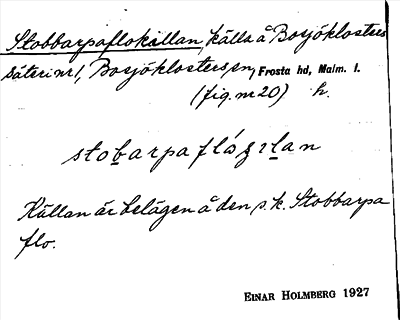 Stobbarpaflokällan, källa å Bosjöklosters
Säteri nr 1, Bosjöklosters sn, Frosta hd, Malm. l.
(fig. nr 20) h.
Källan är belägen å den s.k. Stobbarpa
flo.
EINAR HOLMBERG 1927